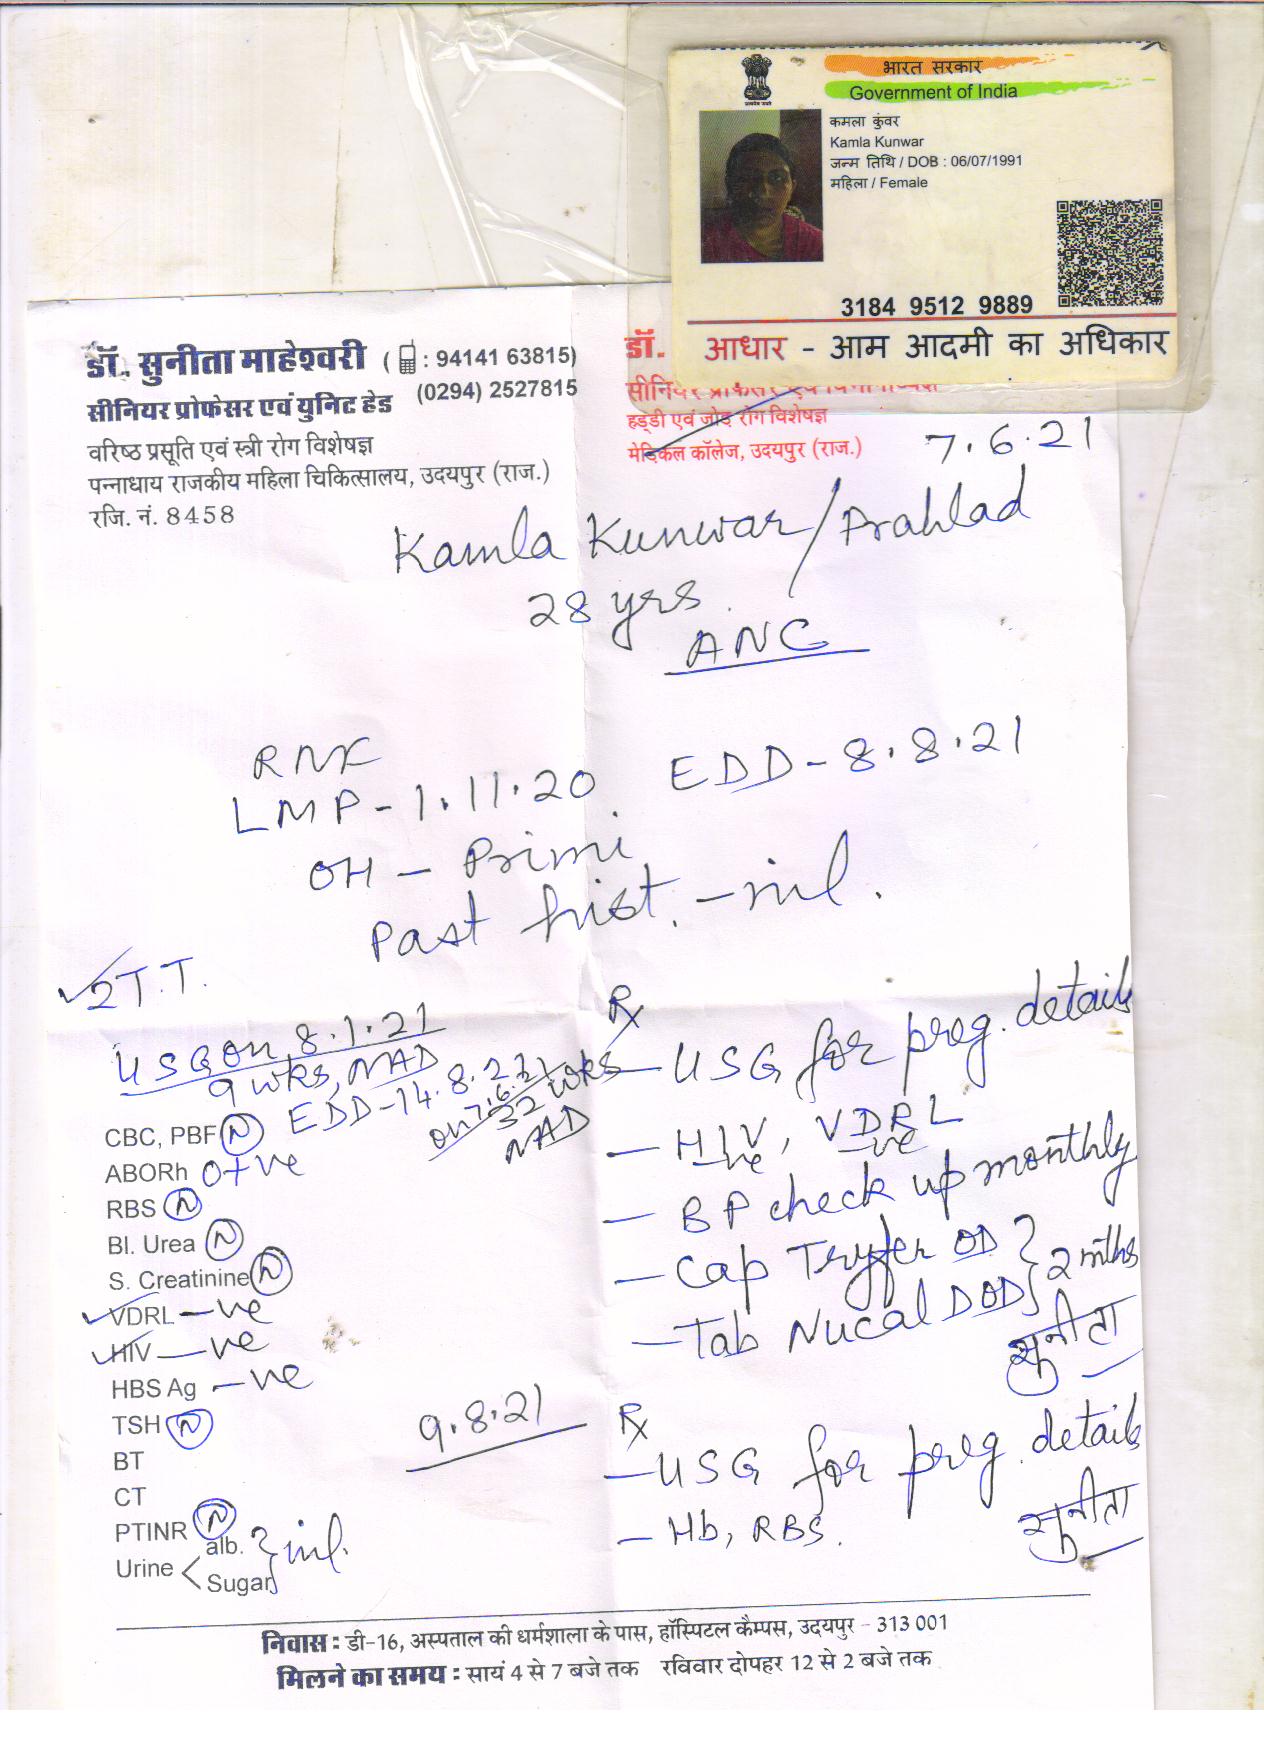 भारत सरकार
Government of India
कमला कुंवर
Kamla Kunwar
जन्म तिथि / DOB : 06/07/1991
महिला / Female
3184 9512 9889
आधार - आम आदमी का अधिकार
डॉ. सुनीता माहेश्वरी ( : 94141 63815)
(0294) 2527815
सीनियर प्रोफेसर एवं युनिट हेड
वरिष्ठ प्रसूति एवं स्त्री रोग विशेषज्ञ
पन्नाधाय राजकीय महिला चिकित्सालय, उदयपुर (राज.)
रजि. नं. 8458
डॉ.
हड्डी एवं जोड़ रोग विशेषज्ञ
मेडिकल कॉलेज, उदयपुर (राज.)
7.6.21
Kamla Kunwar/Prahlad
28 yrs.
ANC
LMP-1.11.20 EDD-8.8.21
OH - Primi
Past hist. - nil.
2 T.T.
USG on 8.1.21
9 wks, NAD
EDD-14.8.21
on 7.6.21
32 wks
NAD
CBC, PBF N
ABORh O+ve
RBS N
Bl. Urea N
S. Creatinine N
VDRL -ve
HIV -ve
HBS Ag -ve
TSH N
BT
CT
PTINR N
Urine < alb. Sugar } nil.
Rx
- USG for preg. details
- HIV, VDRL
-ve -ve
- BP check up monthly
- Cap Tryfer OD } 2 mths
- Tab Nucal D OD
सुनीता
9.8.21
Rx
- USG for preg. details
- Hb, RBS.
सुनीता
निवास : डी-16, अस्पताल की धर्मशाला के पास, हॉस्पिटल कैम्पस, उदयपुर - 313 001
मिलने का समय : सायं 4 से 7 बजे तक रविवार दोपहर 12 से 2 बजे तक